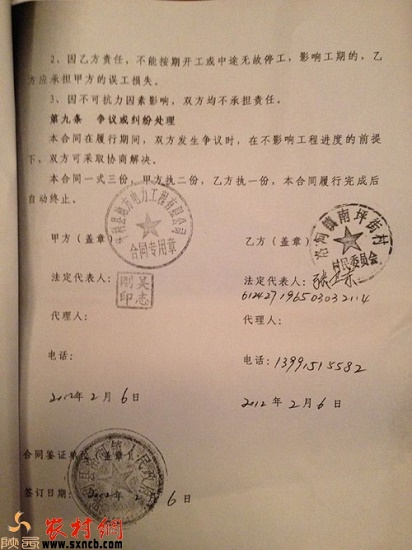 2、因乙方责任,不能按期开工或中途无故停工,影响工期的,乙
方应承担甲方的误工损失。
3、因不可抗力因素影响,双方均不承担责任。
第九条 争议或纠纷处理
本合同在履行期间,双方发生争议时,在不影响工程进度的前提
下、双方可采取协商解决。
本合同一式三份,甲方执二份,乙方执一份,本合同履行完成后
自动终止。
电力工程有限公司
合同专用章
南坪街村
村民委员会
甲方(盖章)
乙方(盖章)
法定代表人:
吴志刚印
法定代表人:
612427196503032114
代理人:
代理人:
电话:
电话:13991515582
2012年2月6日
2012年2月6日
合同签证单位(盖章):
签订日期:2012年2月6日
陕西
农村网
www.sxncb.com